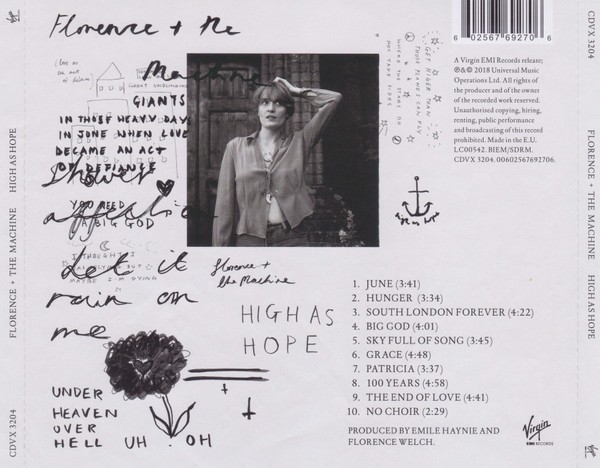 Florence + the
Machine
GIANTS
IN THOSE HEAVY DAYS
IN JUNE WHEN LOVE
BECAME AN ACT
OF DEFIANCE
Shower
affection
YOU NEED
A BIG GOD
Let it
rain on
me
UNDER
HEAVEN
OVER
HELL UH OH
GET BIGGER THAN
Florence +
the Machine
HIGH AS
HOPE
high as hope
6 02567 69270 6
A Virgin EMI Records release;
℗&© 2018 Universal Music
Operations Ltd. All rights of
the producer and of the owner
of the recorded work reserved.
Unauthorised copying, hiring,
renting, public performance
and broadcasting of this record
prohibited. Made in the E.U.
LC00542. BIEM/SDRM.
CDVX 3204. 00602567692706.
1. JUNE (3:41)
2. HUNGER (3:34)
3. SOUTH LONDON FOREVER (4:22)
4. BIG GOD (4:01)
5. SKY FULL OF SONG (3:45)
6. GRACE (4:48)
7. PATRICIA (3:37)
8. 100 YEARS (4:58)
9. THE END OF LOVE (4:41)
10. NO CHOIR (2:29)
PRODUCED BY EMILE HAYNIE AND
FLORENCE WELCH.
Virgin
EMI RECORDS
CDVX 3204 FLORENCE + THE MACHINE HIGH AS HOPE Virgin
CDVX 3204 FLORENCE + THE MACHINE HIGH AS HOPE Virgin